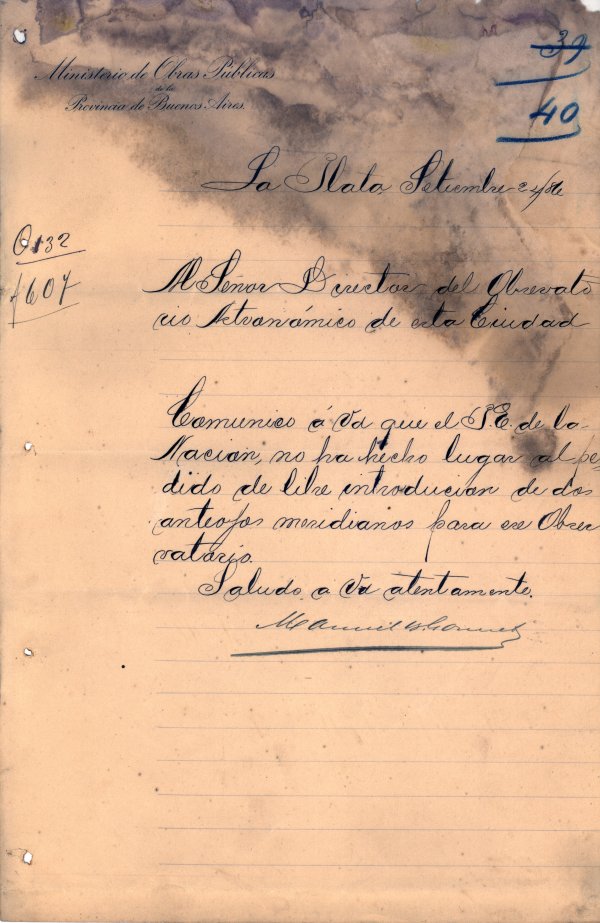 39
40
Ministerio de Obras Públicas
de la
Provincia de Buenos Aires.
La Plata, Setiembre 24/86
O 132
1607
Al Señor Director del Obsevato
rio Astronómico de esta Ciudad
Comunico á Vd que el P.E. de la
Nacion, no ha hecho lugar al pe-
dido de libre introducion de dos
anteojos meridianos para ese Obser
vatório.
Saludo a Vd atentamente.
Manuel B. Gonnet